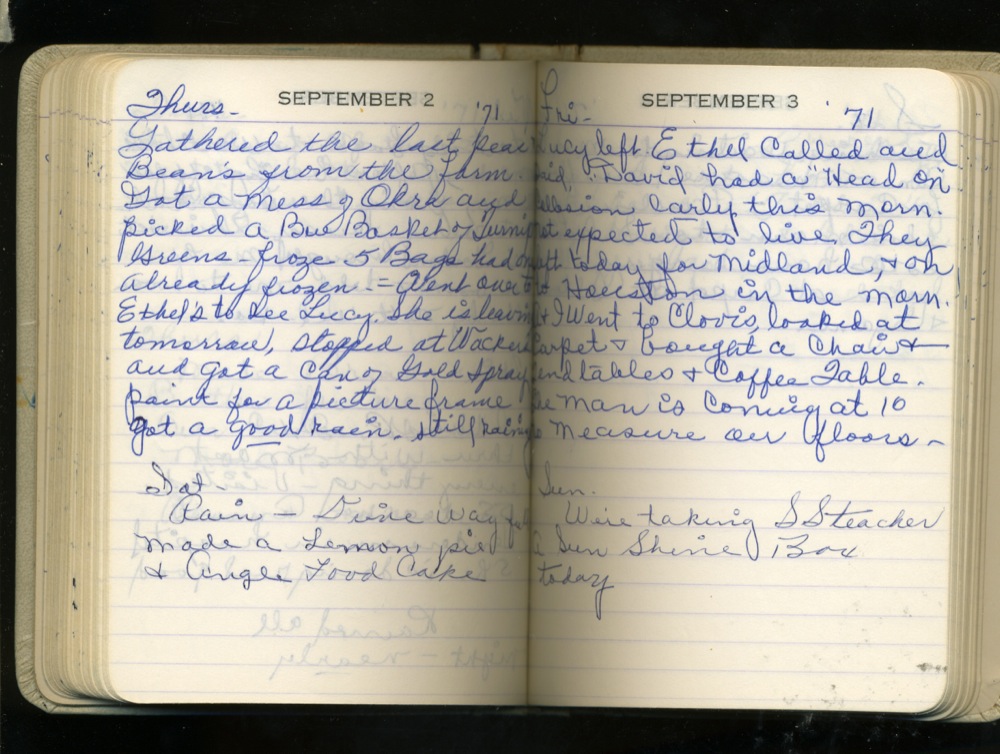 SEPTEMBER 2
Thurs- '71
Gathered the last peas
Beans from the farm.
Got a mess of Okra and
picked a Bu Basket of Turnip
Greens froze 5 Bags had
already frozen - = Went over to
Ethel's to see Lucy. She is leaving
tomorrow, stopped at Wackers
and got a Can of Gold Spray
paint for a picture frame
got a good rain. still raining
Sat.
Rain -
Made a Lemon pie
& Angle Food Cake
SEPTEMBER 3
Fri- '71
Lucy left. Ethel Called and
said, David had a "Head on"
early this Morn.
expected to live. They
today for Midland, & on
Houston in the Morn.
& I Went to Clovis, looked at
Carpet & bought a Chair &
tables & Coffee Table.
man is Coming at 10
measure our floors -
Sun.
We're taking SSteacher
a Sun Shine Box
today